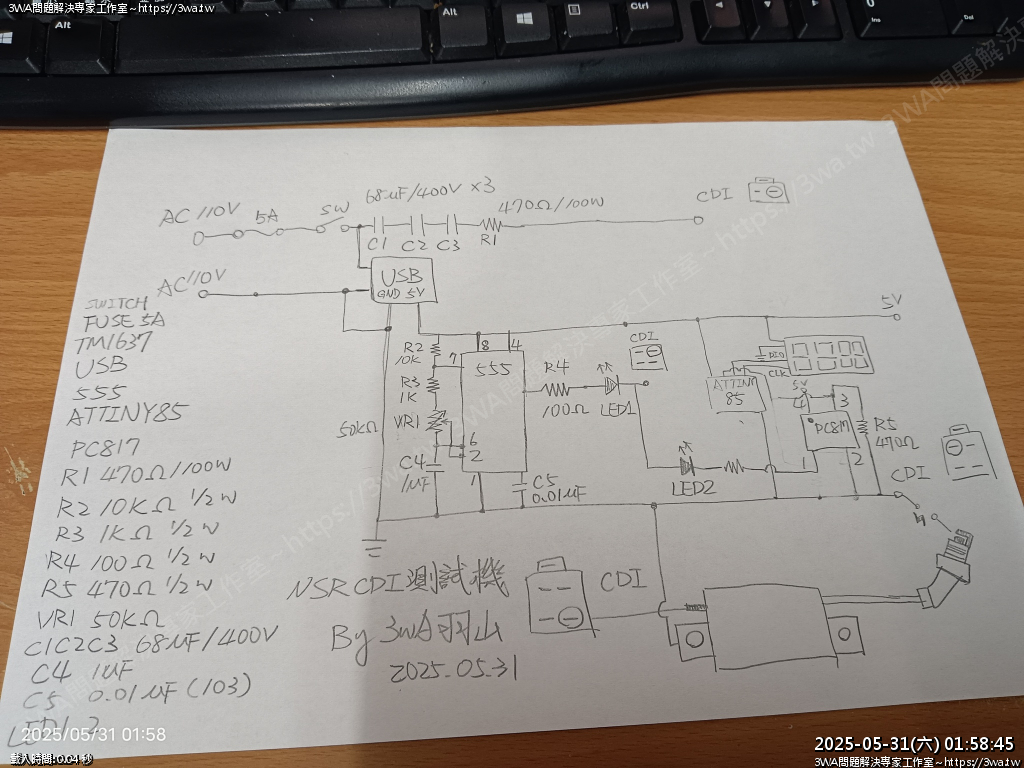 3WA問題解決專家工作室~https://3wa.tw
Alt
Alt
Ctrl
0
Ins
Del
68uF/400V x3
470Ω/100W
CDI
AC 110V
5A
SW
C1
C2
C3
R1
AC 110V
USB
GND 5V
5V
SWITCH
FUSE 5A
TM1637
USB
555
ATTINY85
PC817
R1 470Ω/100W
R2 10KΩ 1/2 W
R3 1KΩ 1/2 W
R4 100Ω 1/2 W
R5 470Ω 1/2 W
VR1 50KΩ
C1C2C3 68uF/400V
C4 1uF
C5 0.01uF (103)
R2
10K
7
8
4
555
R3
1K
50KΩ
VR1
6
2
C4
1uF
1
C5
0.01uF
R4
100Ω
LED1
CDI
LED2
ATTINY
85
DIO
CLK
5V
4
3
PC817
1
2
R5
470Ω
CDI
NSR CDI測試機
By 3WA羽山
2025.05.31
CDI
2025/05/31 01:58
載入時間: 0.04 秒
2025-05-31(六) 01:58:45
3WA問題解決專家工作室~https://3wa.tw